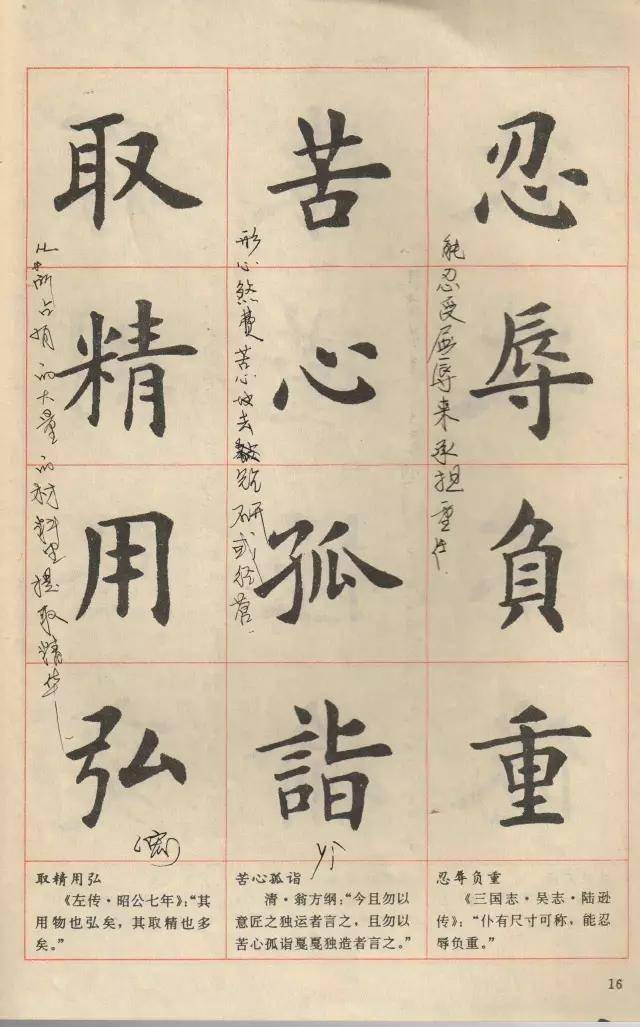 忍辱負重
能忍受屈辱来承担重任.
忍辱负重
《三国志·吴志·陆逊
传》:“仆有尺寸可称,能忍
辱负重。”
苦心孤詣
煞费苦心地去钻研或经营.
yì
苦心孤诣
清·翁方纲:“今且勿以
意匠之独运者言之,且勿以
苦心孤诣戛戛独造者言之。”
取精用弘
从所占有的大量的材料里提取精华
(宏)
取精用弘
《左传·昭公七年》:“其
用物也弘矣,其取精也多
矣。”
16